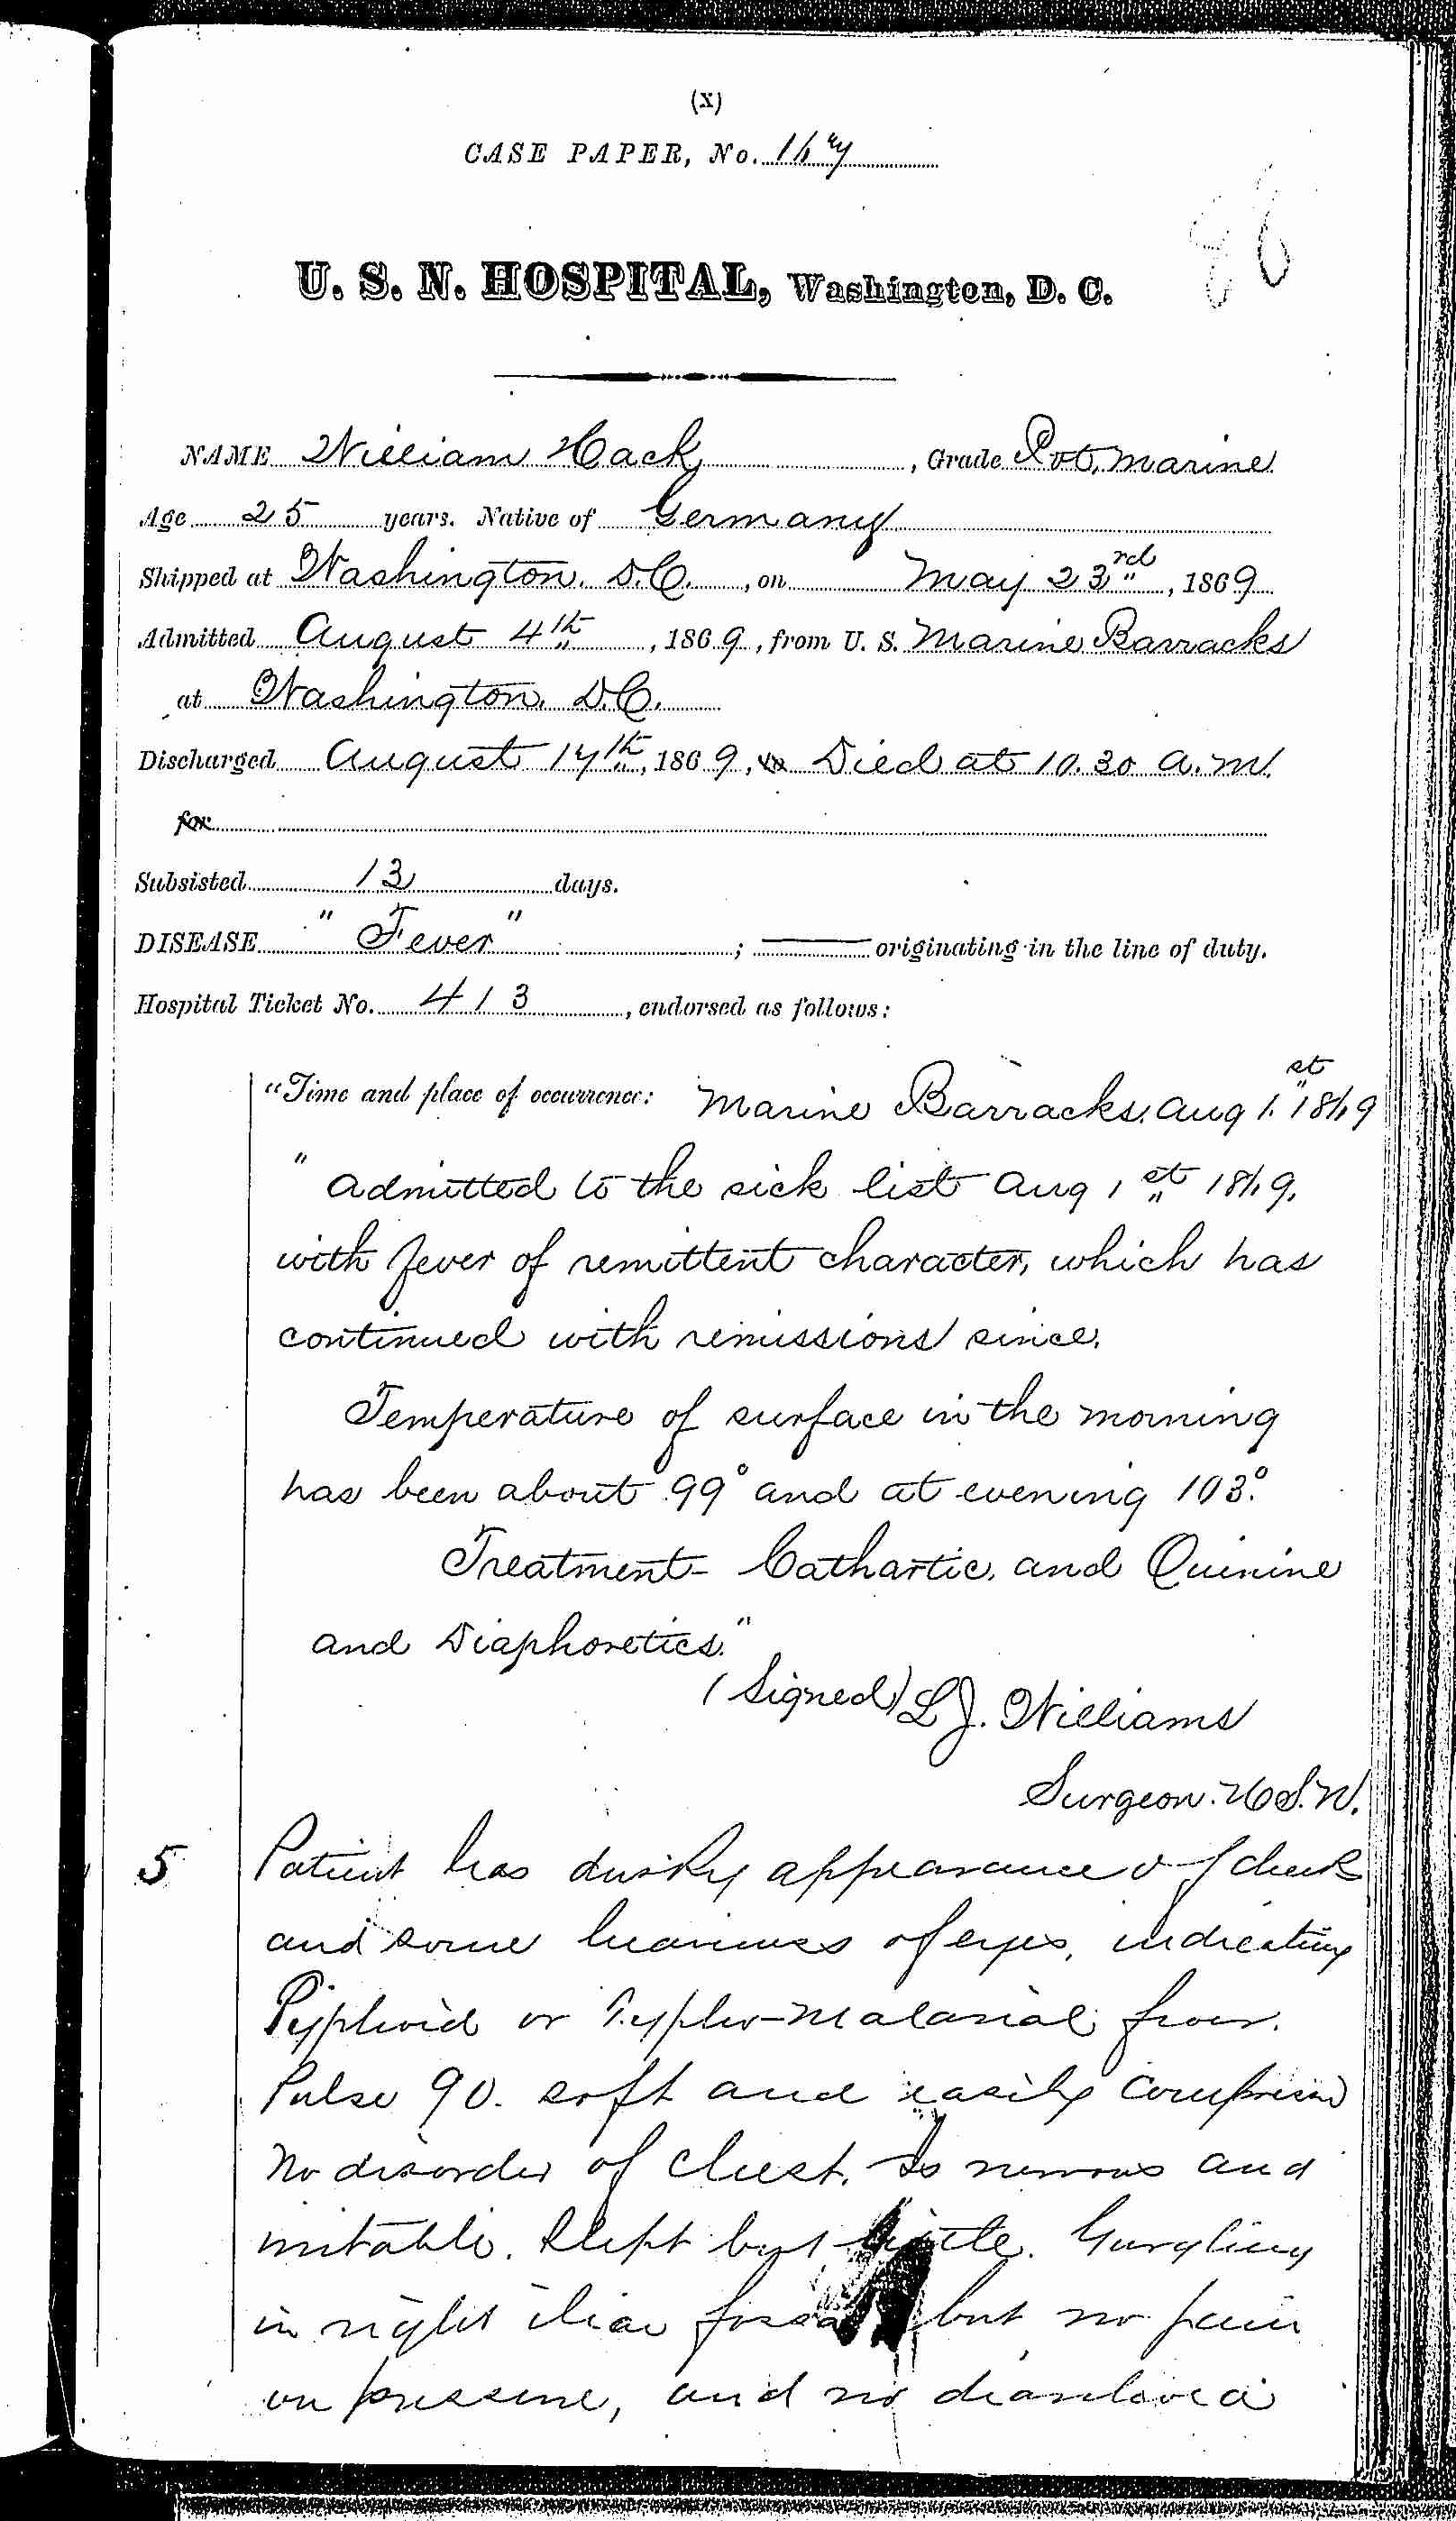 (X)
CASE PAPER, No. 167
86
U. S. N. HOSPITAL, Washington, D. C.
NAME William Hack, Grade Pvt. Marine
Age 25 years. Native of Germany
Shipped at Washington. D.C., on May 23rd, 1869
Admitted August 4th, 1869, from U. S. Marine Barracks
at Washington. D.C.
Discharged August 17th, 1869, to Died at 10.30 a.m.
for
Subsisted 13 days.
DISEASE "Fever"; originating in the line of duty.
Hospital Ticket No. 413, endorsed as follows:
"Time and place of occurrence: Marine Barracks. Aug 1st 1869
" Admitted to the sick list Aug 1st 1869.
with fever of remittent character, which has
continued with remissions since.
Temperature of surface in the morning
has been about 99° and at evening 103°.
Treatment- Cathartic, and Quinine
and Diaphoretics."
(Signed) L J. Williams
Surgeon. U.S.N.
5 Patient has dusky appearance of cheek
and some heaviness of eyes, indicating
Typhoid or Typho-Malarial fever.
Pulse 90. soft and easily compressed
No disorder of chest. Is nervous and
irritable. Slept but little. Gurgling
in right iliac fossa but no pain
on pressure, and no diarrhoea